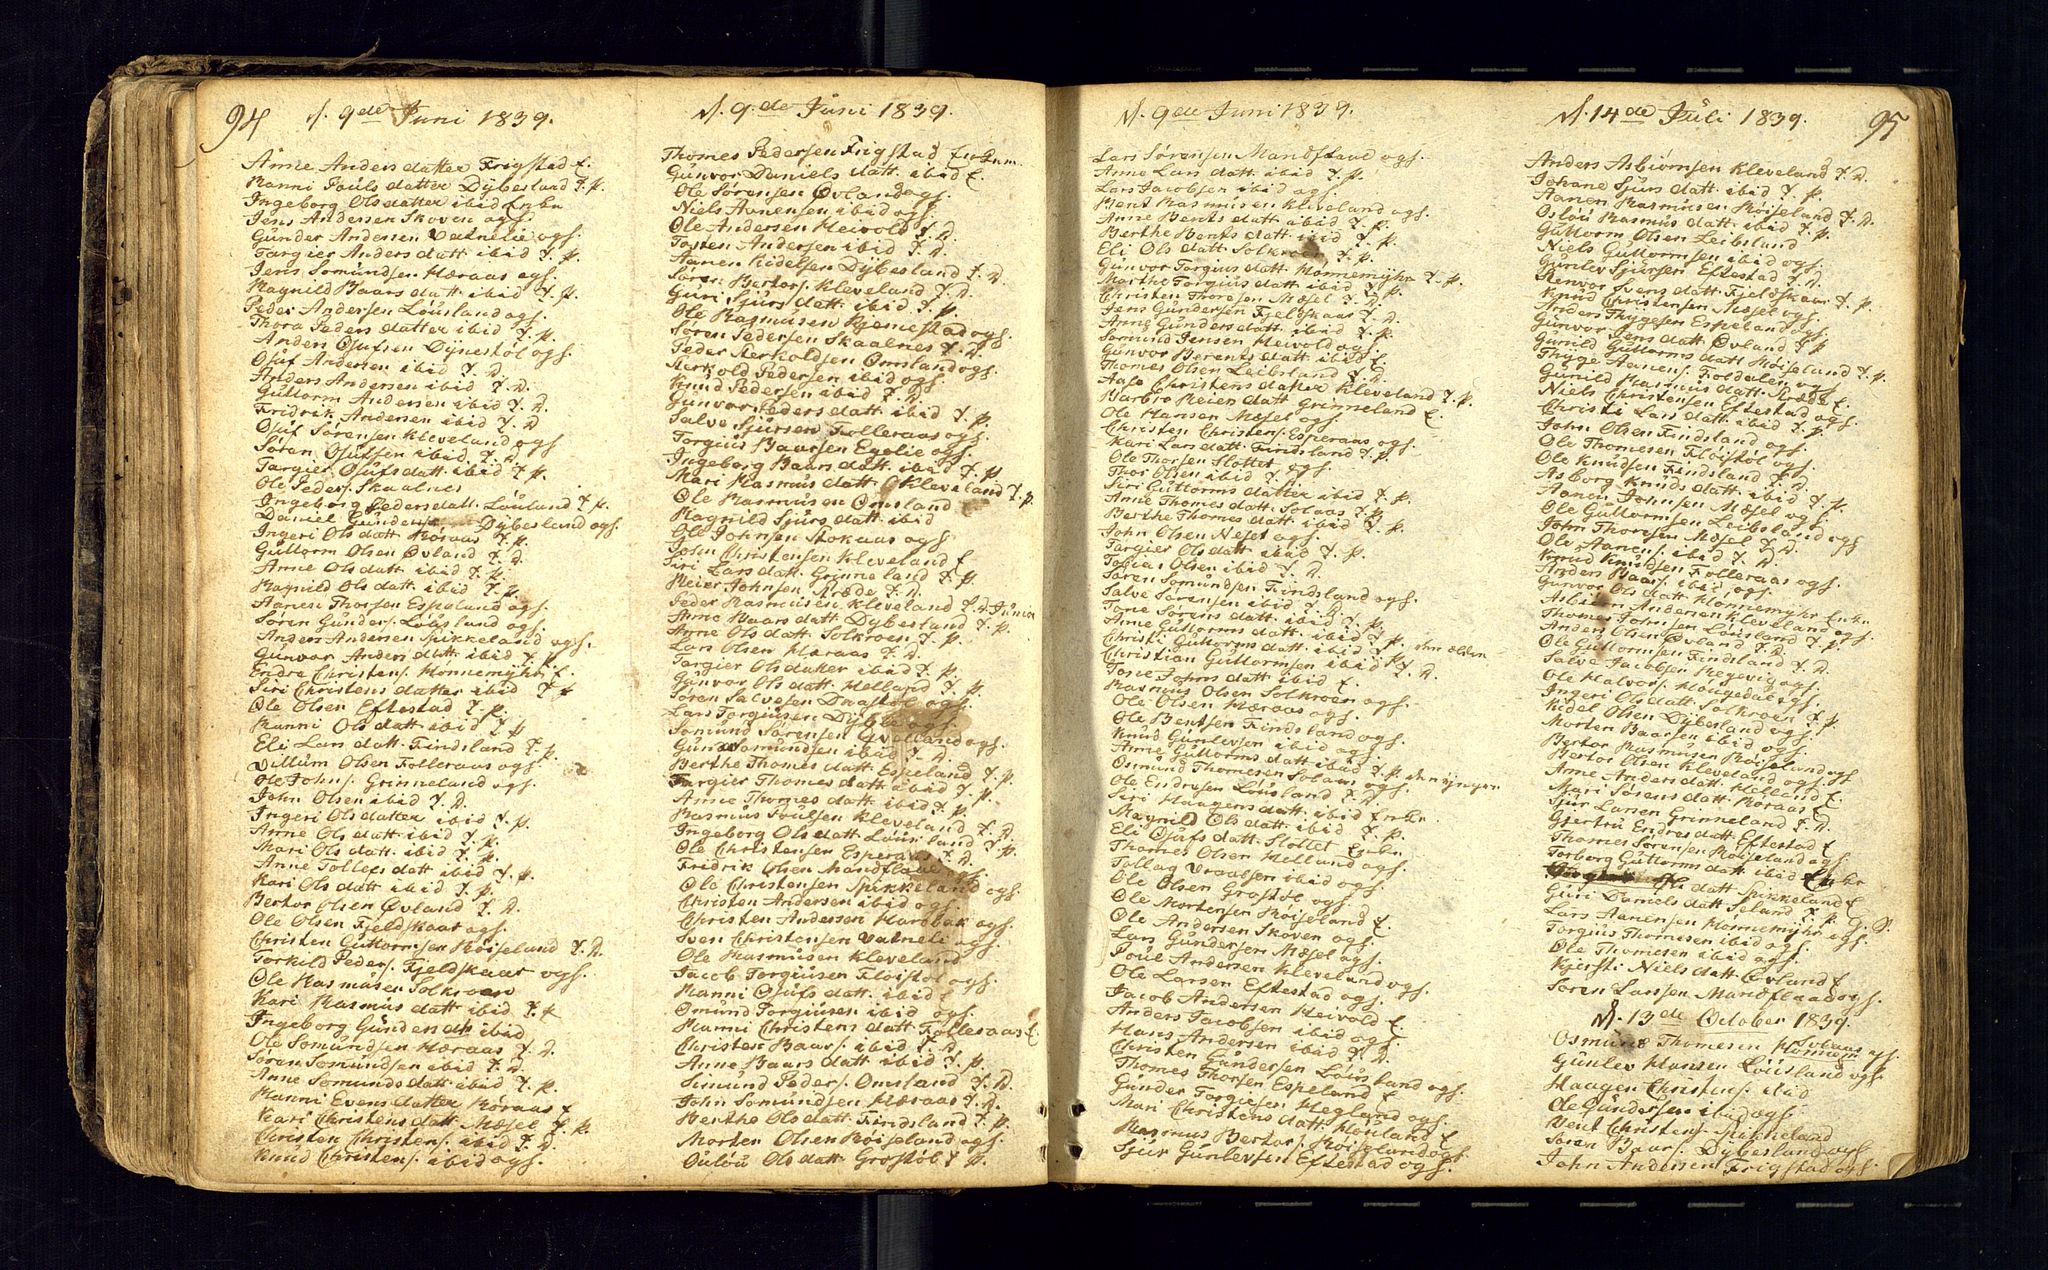 94 d. 9de Juni 1839.
Anne Anders datter Frigstad E.
Ranni Pouls datter Dybesland T. p.
Ingeborg Ols datter ibid Enke
Jens Andersen Skoven ogs.
Gunder Andersen Vatnelie ogs.
Targier Anders datt ibid T. p.
Jens Somundsen Hæraas ogs.
Ragnild Baars datt ibid T. p.
Peder Andersen Lousland ogs.
Thora Peders datter ibid T. p.
Anders Ojufsen Dynestøl ogs.
Ojuf Andersen ibid T. D.
Anders Andersen ibid T. D.
Guttorm Andersen ibid T. D.
Fridrik Andersen ibid T. D.
Ojuf Sørensen Kleveland ogs
Søren Ojufsen ibid T. D.
Targier Ojufs datt ibid T. p.
Ole Peders. Skaalnes
Ingeborg Peders datt. Louland T. p.
Daniel Gunders Dybesland ogs.
Ingeri Ols datt Røraas T. p.
Guttorm Olsen Øvland T. D.
Anne Ols datt ibid T. p.
Ragnild Ols datt ibid T. p.
Aanen Thorsen Espeland ogs.
Søren Gunders. Lousland ogs.
Anders Andersen Spikkeland ogs.
Gunvor Anders datt ibid T. p.
Endre Christens. Honnemyhr E.
Siri Christens datter ibid T. p.
Ole Olsen Eftestad T. D.
Ranni Ols datt ibid T. p.
Eli Lars datt. Findsland T. p.
Villum Olsen Folleraas ogs.
Ole Johns. Grinneland ogs.
John Olsen ibid T. D.
Ingeri Ols datter ibid T. p.
Anne Ols datt ibid T. p.
Mari Ols datt. ibid T. p.
Anne Tollefs datt ibid T. p.
Kari Ols datt ibid T. p.
Bertor Olsen Øvland T. D.
Ole Olsen Fjeldskaar ogs.
Christen Guttormsen Røiseland T. D.
Torkild Peders. Fjeldskaar ogs.
Ole Rasmusen Solkroen
Kari Rasmus datt ibid T. p.
Ingeborg Gunders dtr ibid
Ole Somundsen Hæraas T. D.
Søren Somundsen ibid T. D.
Anne Somunds datt ibid T. p.
Ranni Evens datter Røraas E
Kari Christens datt Mæsel T. p.
Christen Christens. ibid T. D.
Knud Christens. ibid ogs.
d. 9.de Juni 1839.
Thomes Pedersen Frigstad
Gunvor Daniels datt. ibid E
Ole Sørensen Øvland ogs.
Niels Aanensen ibid ogs.
Ole Andersen Heivold T. D.
Tosten Andersen ibid T. D.
Aanen Kidelsen Dybesland T. D
Søren Bertors. Kleveland T. D.
Guri Sjurs datt ibid T. p.
Ole Rasmusen Remestad ogs.
Søren Pedersen Skaalnes T. D.
Peder Kerkoldsen Omsland ogs.
Kerkold Pedersen ibid ogs.
Knud Pedersen ibid T. D.
Gunvor Peders datt ibid T. p.
Salve Sjursen Folleraas ogs.
Torgius Baarsen Egelie ogs.
Ingeborg Baars datt ibid T. p
Mari Rasmus datt Kleveland T. p.
Ole Rasmusen Omsland E
Ragnild Sjurs datt ibid
Ole Johnsen Stokaas ogs
John Christensen Kleveland E
Siri Lars datt. Grinneland T. p.
Reier Johnsen Træde T. D.
Peder Rasmusen Kleveland T. D. Junior
Anne Baars datt. Dybesland T. p.
Anne Ols datt. Solkroen T. p.
Lars Olsen Hæraas T. D.
Targier Ols datter ibid T. p.
Gunvor Ols datt. Helland T. p.
Søren Salvesen Dnastøl ogs.
Lars Torgiusen Dyble ogs.
Somund Sørensen Øvelland ogs.
Gun Somundsen ibid T. D.
Berthe Thomes datt. Espeland T. p
Targier Thomes datt ibid T. p.
Anne Thomes datt ibid T. p.
Rasmus Poulsen Kleveland T. D.
Ingeborg Ols datt Lousland T. p.
Ole Christensen Esperaas T. D.
Fridrik Olsen Mandflaae ogs.
Ole Christensen Spikkeland ogs.
Christen Andersen ibid ogs.
Christen Andersen Harbak ogs.
Sven Christensen Vatneli ogs.
Ole Rasmusen Kleveland
Jacob Torgiusen Fløistøl ogs.
Ranni Ojufs datt. ibid E
Omund Torgiusen ibid ogs.
Ranni Christens datt Folleraas E
Christen Baars. ibid T. D.
Anne Baars datt ibid T. p.
Simund Peders. Omsland T. D.
John Somundsen Hæraas T. D.
Berthe Ols datt Findsland T. p.
Morten Olsen Røiseland ogs.
Oulou Ols datt Grostøl T. p.
d. 9de Juni 1839.
Lars Sørensen Mandflaae ogs.
Anne Lars datt ibid T. p.
Lars Jacobsen ibid ogs.
Bent Rasmusen Kleveland ogs.
Anne Bents datt ibid T. p.
Berthe Bents datt ibid T. p.
Eli Ols datt Solkroen T. p.
Gunvor Torgius datt Honnemyhr T. p.
Marthe Torgius datt ibid T. p.
Christen Thoresen Mæsel T. D.
Jens Gundersen Fjeldskaas T. D.
Anne Gunders datt ibid T. p.
Somund Jensen Heivold ogs.
Gunvor Berents datt ibid E
Thomes Olsen Leibsland T. D.
Aase Christens datter Kleveland T. p.
Barbro Reiers datt Grinneland E.
Ole Hansen Mæsel ogs.
Christen Christens. Esperaas ogs.
Kari Lars datt Findsland T. p.
Ole Thorsen Slottet ogs.
Thor Olsen ibid T. D.
Siri Guttorms datter ibid T. p.
Anne Thomes datt Solaas T. p.
Berthe Thomes datt ibid T. p.
John Olsen Neset ogs.
Targier Ols datt ibid T. p.
Tobias Olsen ibid T. D.
Søren Somundsen Findsland ogs.
Salve Sørensen ibid T. D.
Tone Sørens datt ibid T. p.
Anne Guttorms datt ibid T. p. den ældre
Christi Guttorms datt ibid T. p.
Christian Guttormsen ibid T. D.
Tone Johns datt ibid E.
Rasmus Olsen Solkroen ogs.
Ole Olsen Hæraas ogs.
Ole Bentsen Findsland ogs.
Knud Gunlevsen ibid ogs.
Anne Guttorms datt ibid T. p. den yngre
Osmund Thomesen Solaas ogs.
Ole Endresen Lousland T. D.
Siri Haagens datt. ibid Enke.
Magnild Ols datt ibid T. p.
Eli Ojufs datt Slottet Enke
Thomes Olsen Helland ogs.
Tollag Vraalsen ibid ogs.
Ole Olsen Grostøl ogs.
Ole Mortensen Røiseland E.
Ole Andersen Skoven ogs.
Lars Gundersen Mæsel ogs.
Poul Andersen Kleveland ogs.
Ole Larsen Eftestad ogs.
Jacob Andersen Heivold E.
Anders Jacobsen ibid ogs.
Hans Andersen ibid T. D.
Christen Gundersen Lousland ogs.
Thomes Thorsen Espeland E.
Gunder Torgiesen Hegland ogs.
Mari Christens datt Houland E
Rasmus Bertors. Røiseland ogs
Sjur Gunlevsen Eftestad ogs.
d. 14de Juli 1839. 95
Anders Asbiørnsen Kleveland T. D.
Johane Sjurs datt ibid T. p.
Aanen Rasmusen Røiseland T. D.
Oslou Rasmus datt ibid T. p.
Guttorm Olsen Leibsland
Niels Guttormsen ibid ogs.
Gunlev Sjursen Eftestad T. D.
Renvor Svens datt Fjeldskaar T. p.
Knud Christensen Mæsel ogs.
Anders Thygesen Espeland ogs.
Gunvor Jens datt Øvland T. p
Gunild Guttorms datt Røiseland T. p.
Thyge Aanens. Foldalen ogs
Gunild Rasmus datt. Træde E.
Niels Christensen Eftestad ogs.
Christi Lars datt ibid T. p.
John Olsen Findsland ogs.
Ole Thomesen Fløistøl ogs.
Ole Knudsen Findsland T. D.
Asborg Knuds datt ibid T. p.
Aanen Johnsen Mæsel ogs
Ole Guttormsen Leibsland ogs
John Thoresen Mæsel T. D.
Ole Aanens. ibid T. D.
Knud Knudsen Folleraas ogs.
Anders Baars. ibid, ogs.
Gunvor Ols datt Honnemyhr Enke
Asbiørn Andersen Kleveland ogs.
Thomes Johnsen Lousland T. D.
Anders Olsen Øvland T. D.
Ole Guttormsen Findsland T. D.
Salve Jacobsen Regevig ogs.
Ole Halvors. Haugedal ogs.
Ingeri Ols datt Solkroen T. p.
Kidel Olsen Dybesland ogs.
Morten Baarsen ibid ogs.
Bertor Rasmusen Røiseland ogs
Bertor Olsen Kleveland ogs.
Anne Anders datt Helland E.
Mari Sørens datt Røraas E
Sjur Larsen Grinneland T. D.
Gjertru Endres datt Eftestad E
Thomes Sørensen Røiseland ogs.
Torborg Guttorms datt ibid Enke
Ols datt Spikkeland E
Guri Daniels datt Seland T. p. G. S.
Lars Aanensen Honnemyhr ogs.
Torgius Thomesen ibid ogs.
Ole Thomesen ibid ogs.
Kjersti Niels datt Øvland E
Søren Larsen Mandflaa ogs.
d. 13de October 1839.
Osmund Thomesen Solaas ogs
Gunlev Hansen Lousland ogs.
Haagen Christens. ibid
Ole Gundersen ibid ogs.
Bent Christens. Spickeland
Søren Baars. Dybesland ogs
John Andersen Frigstad ogs.